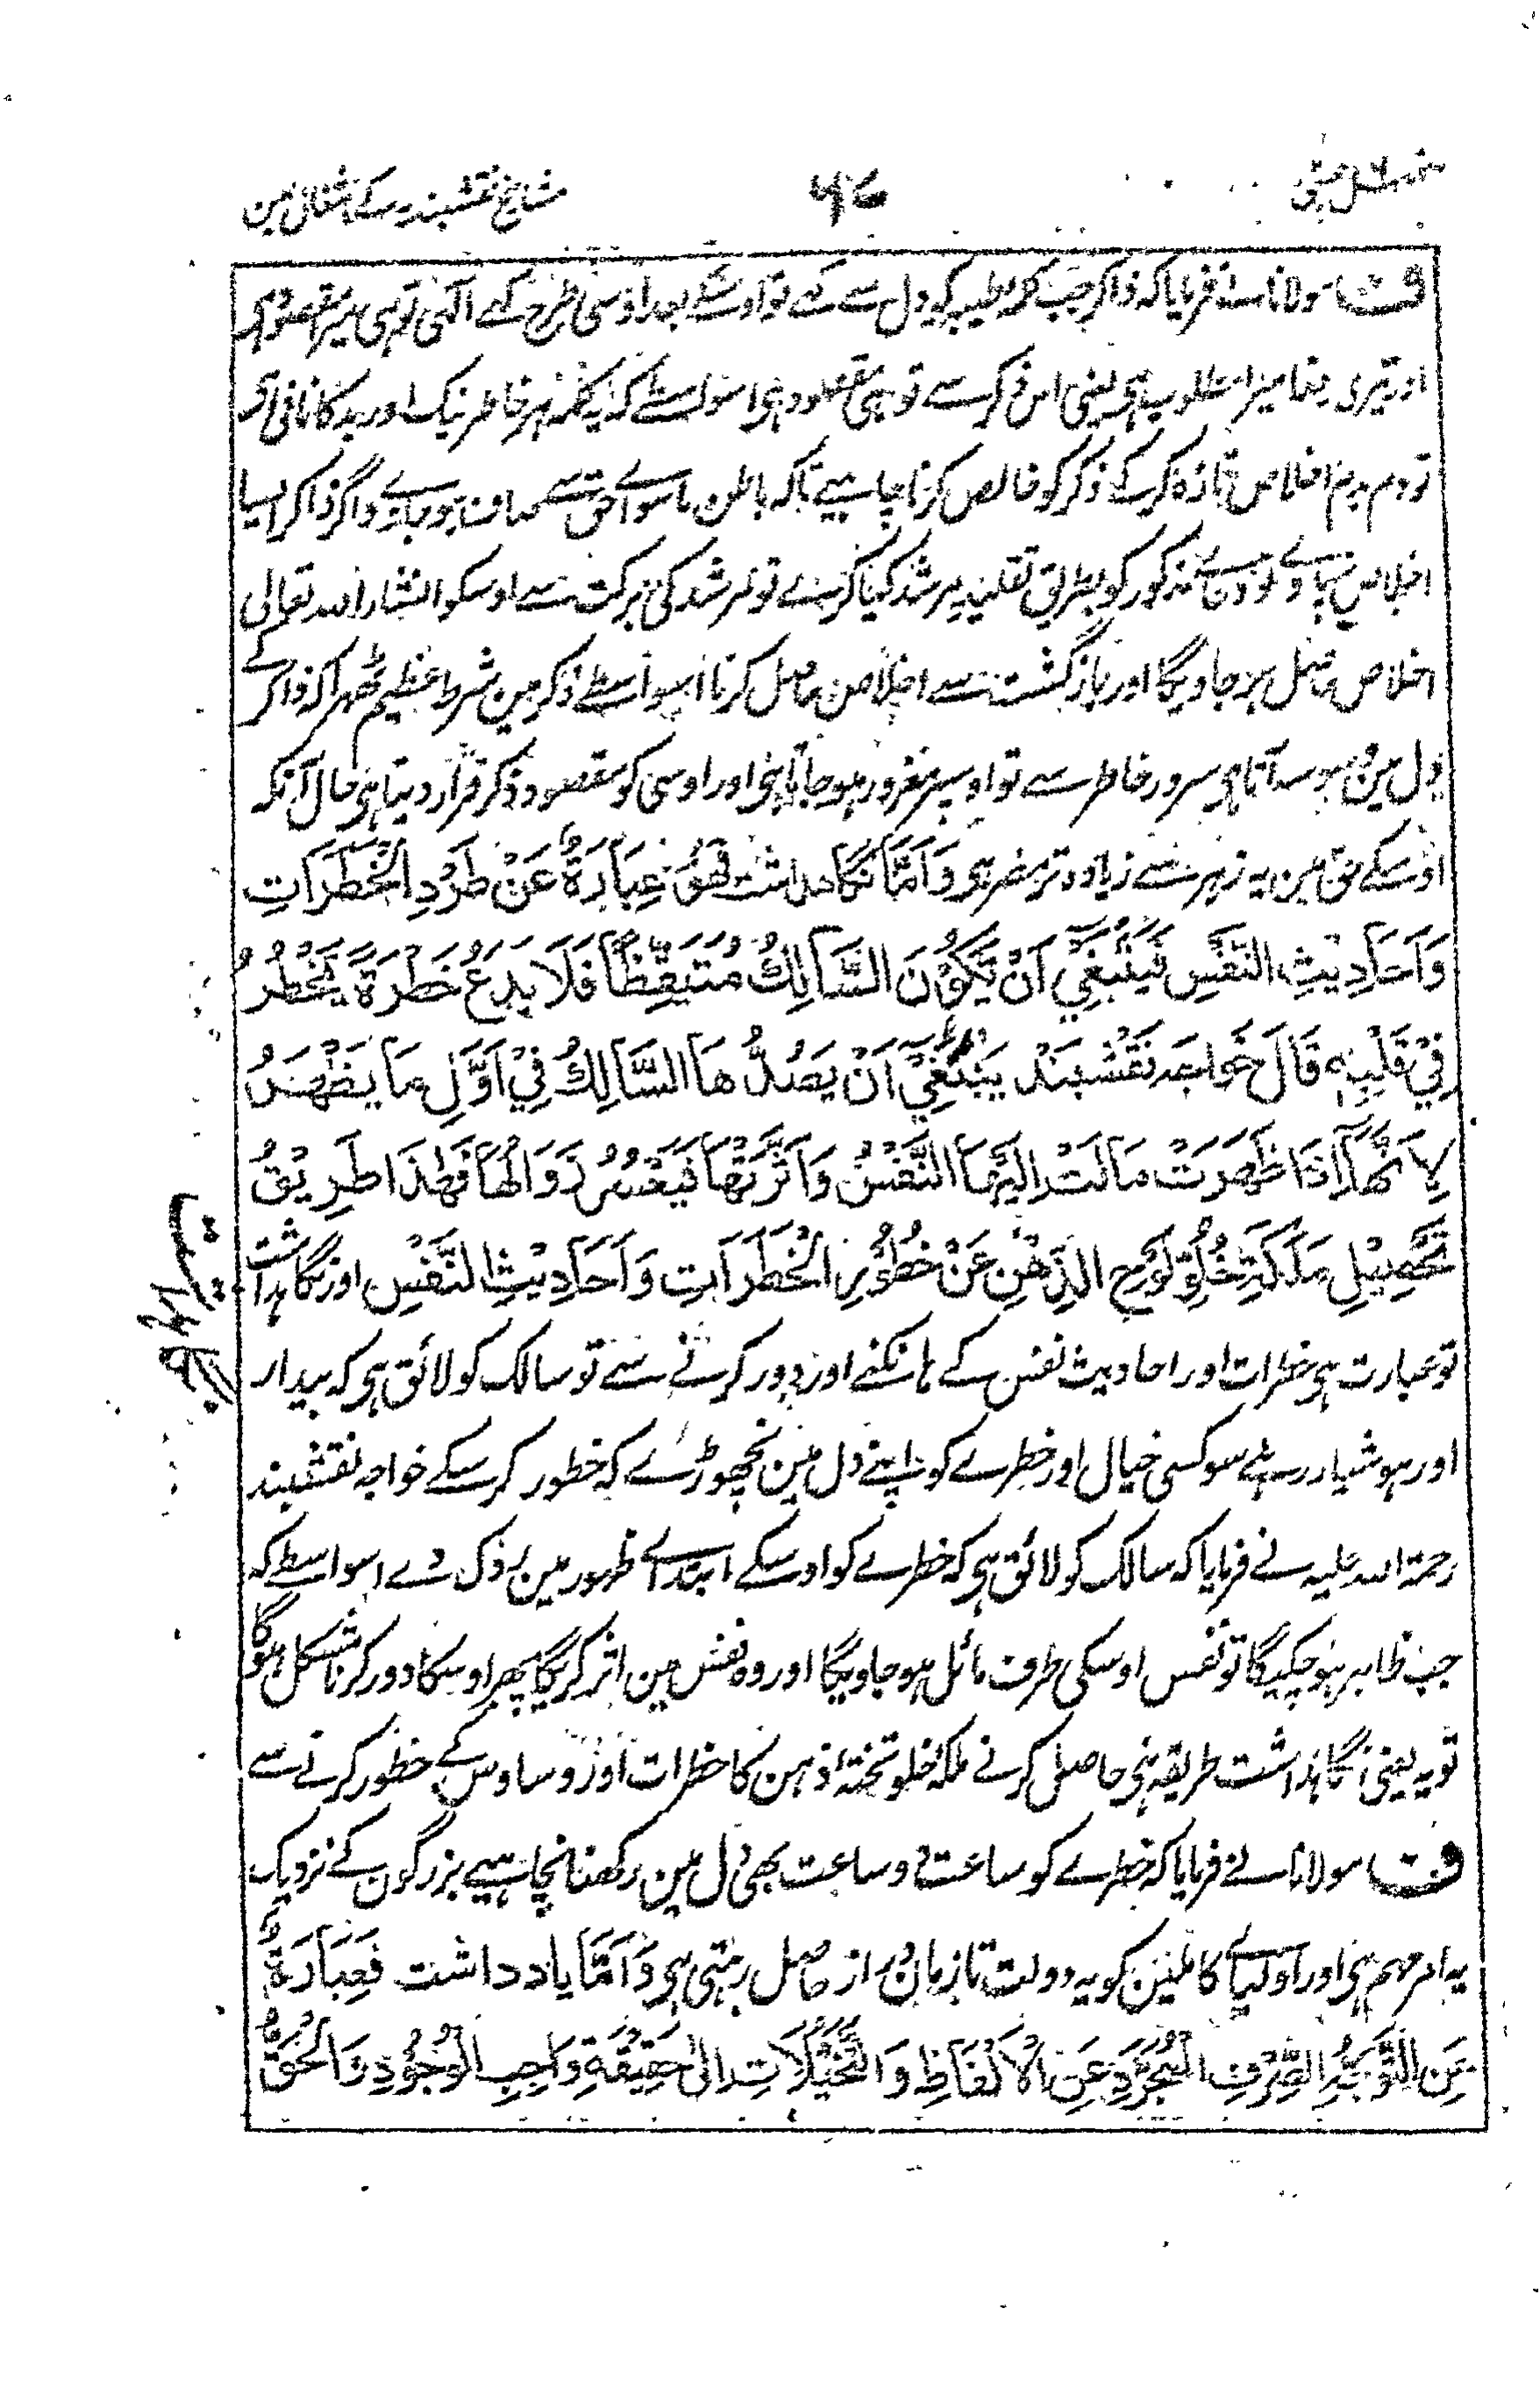 فصل چھٹی ۷۶ مشایخ نقشبندیہ کے اشغال مین
ف مولانا نے فرمایا کہ ذاکر جب کلمہ طیبہ کو دل سے کہے تو اوسکے بعد اوسی طرح کہے الٰہی تو ہی میرا مقصود ہی
اور تیری رضا میرا مطلوب ہی یعنی اس ذکر سے تو ہی مقصود ہی اسواسطے کہ یہ کلمہ ہر خاطر نیک اور بد کا نافی ہی
تو دم بدم اخلاص تازہ کر کے ذکر کو خالص کرنا چاہیے تاکہ باطن ماسواے حق سے صاف ہو جاوے اگر ذاکر ایسا
اخلاص نپاوے تو دعاے مذکور کو بطریق تقلید مرشد کیا کرے تو مرشد کی برکت سے اوسکو انشاء اللہ تعالی
اخلاص حاصل ہو جاویگا اور بازگشت سے اخلاص حاصل کرنا اسواسطے ذکر مین شرط عظیم ٹھہرا کہ ذاکر کے
دل مین وسوسہ آتا ہی سرور خاطر سے تو اوسپر مغرور ہو جاتا ہی اور اوسی کو مقصود ذکر قرار دیتا ہی حال آنکہ
اوسکے حق مین یہ زہر سے زیادہ تر مضر ہی وَاَمَّا نگاهداشت فَهُوَ عِبَارَةٌ عَنْ طَرْدِ الْخَطَرَاتِ
وَاَحَادِيْثِ النَّفْسِ فَيَنْبَغِيْ اَنْ يَّكُوْنَ السَّالِكُ مُتَيَقِّظًا فَلَا يَدَعُ خَطْرَةً يَّخْطُرُ
فِيْ قَلْبِهٖ قَالَ خواجہ نقشبند يَنْبَغِيْ اَنْ يَصُدَّهَا السَّالِكُ فِيْ اَوَّلِ مَا يَظْهَرُ
لِاَنَّهَا اِذَا ظَهَرَتْ مَالَتْ اِلَيْهَا النَّفْسُ وَاَثَّرَتْهَا فَيَعْسُرُ زَوَالُهَا فَهٰذَا طَرِيْقُ
تَحْصِيْلِ مَلَكَةِ خُلُوِّ لَوْحِ الذِّهْنِ عَنْ خُطُوْرِ الْخَطَرَاتِ وَاَحَادِيْثِ النَّفْسِ اور نگاہداشت
تو عبارت ہی خطرات اور احادیث نفس کے ہانکنے اور دور کرنے سے تو سالک کو لائق ہی کہ بیدار
اور ہوشیار رہے سو کسی خیال اور خطرے کو اپنے دل مین نچھوڑے کہ خطور کر سکے خواجہ نقشبند
رحمۃ اللہ علیہ نے فرمایا کہ سالک کو لائق ہی کہ خطرے کو اوسکے ابتداے ظہور مین روک دے اسواسطے کہ
جب ظاہر ہو چکیگا تو نفس اوسکی طرف مائل ہو جاویگا اور وہ نفس مین اثر کریگا پھر اوسکا دور کرنا مشکل ہوگا
تو یہ یعنی نگاہداشت طریقہ ہی حاصل کرنے ملکہ خلو تختہ ذہن کا خطرات اور وساوس کے خطور کرنے سے
ف مولانا نے فرمایا کہ خطرے کو ساعت و ساعت بھی دل مین رکھنا نچاہیے بزرگون کے نزدیک
یہ امر مہم ہی اور اولیاے کاملین کو یہ دولت تا زمان دراز حاصل رہتی ہی وَاَمَّا یادداشت فَعِبَارَةٌ
عَنِ التَّوَجُّهِ الصِّرْفِ الْمُجَرَّدِ عَنِ الْاَلْفَاظِ وَالتَّخَيُّلَاتِ اِلٰى حَقِيْقَةِ وَاجِبِ الْوُجُوْدِ وَالْحَقُّ